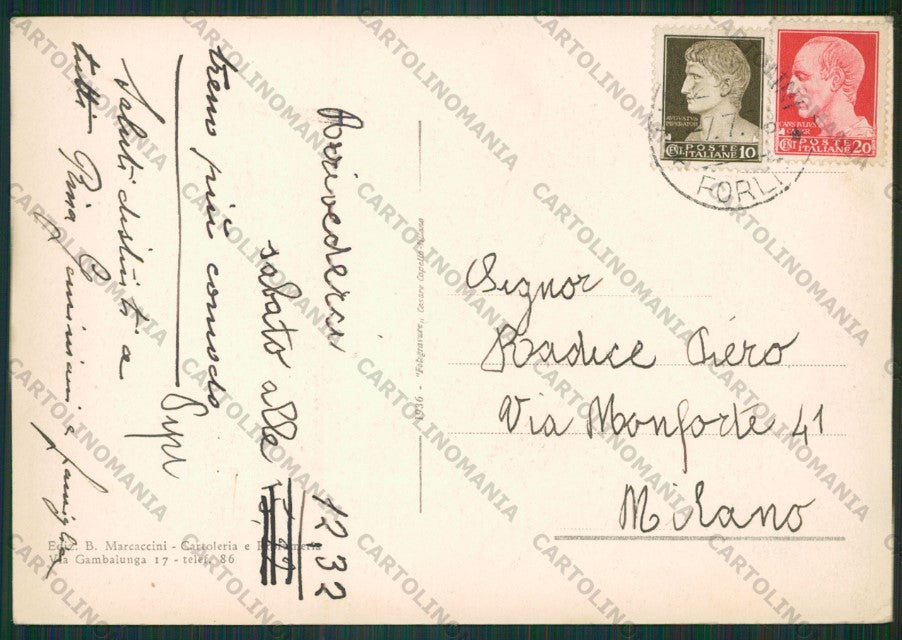 Arrivederci
sabato alle 12,32
treno più comodo
Pipi
Saluti distinti a
tutti Pina Geminiani e famiglia
Ediz. B. Marcaccini - Cartoleria e Profumeria
Via Gambalunga 17 - telef. 86
1936 - "Fotogravure" Cesare Capello Milano
AVGVSTVS
IMPERATOR
POSTE
CENT ITALIANE 10
CAIVS IVLIVS
CAESAR
POSTE
CENT ITALIANE 20
FORLI
Signor
Radice Piero
Via Monforte 41
Milano
CARTOLINOMANIA